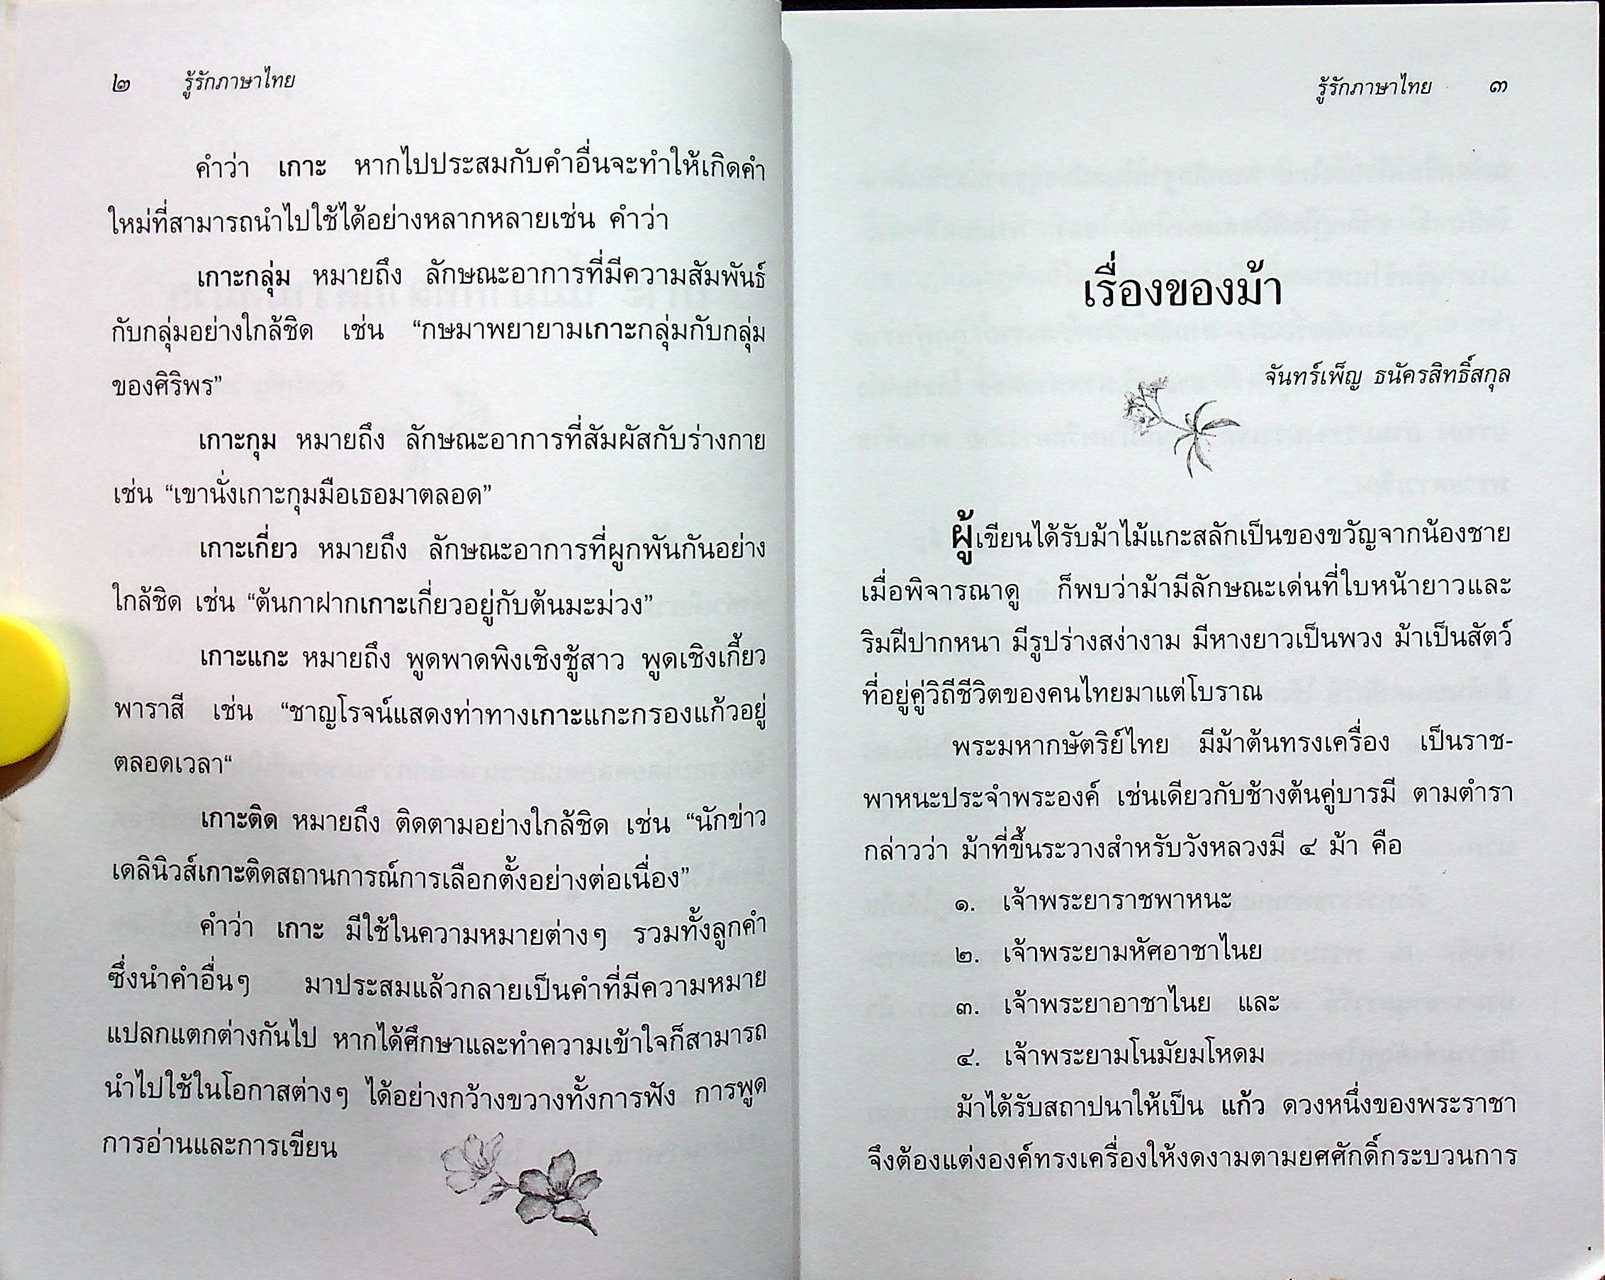 ๒ รู้รักภาษาไทย
คำว่า เกาะ หากไปประสมกับคำอื่นจะทำให้เกิดคำ
ใหม่ที่สามารถนำไปใช้ได้อย่างหลากหลายเช่น คำว่า
เกาะกลุ่ม หมายถึง ลักษณะอาการที่มีความสัมพันธ์
กับกลุ่มอย่างใกล้ชิด เช่น “กษมาพยายามเกาะกลุ่มกับกลุ่ม
ของศิริพร”
เกาะกุม หมายถึง ลักษณะอาการที่สัมผัสกับร่างกาย
เช่น “เขานั่งเกาะกุมมือเธอมาตลอด”
เกาะเกี่ยว หมายถึง ลักษณะอาการที่ผูกพันกันอย่าง
ใกล้ชิด เช่น “ต้นกาฝากเกาะเกี่ยวอยู่กับต้นมะม่วง”
เกาะแกะ หมายถึง พูดพาดพิงเชิงชู้สาว พูดเชิงเกี้ยว
พาราสี เช่น “ชาญโรจน์แสดงท่าทางเกาะแกะกรองแก้วอยู่
ตลอดเวลา“
เกาะติด หมายถึง ติดตามอย่างใกล้ชิด เช่น “นักข่าว
เดลินิวส์เกาะติดสถานการณ์การเลือกตั้งอย่างต่อเนื่อง”
คำว่า เกาะ มีใช้ในความหมายต่างๆ รวมทั้งลูกคำ
ซึ่งนำคำอื่นๆ มาประสมแล้วกลายเป็นคำที่มีความหมาย
แปลกแตกต่างกันไป หากได้ศึกษาและทำความเข้าใจก็สามารถ
นำไปใช้ในโอกาสต่างๆ ได้อย่างกว้างขวางทั้งการฟัง การพูด
การอ่านและการเขียน
รู้รักภาษาไทย ๓
เรื่องของม้า
จันทร์เพ็ญ ธนัครสิทธิ์สกุล
ผู้เขียนได้รับม้าไม้แกะสลักเป็นของขวัญจากน้องชาย
เมื่อพิจารณาดู ก็พบว่าม้ามีลักษณะเด่นที่ใบหน้ายาวและ
ริมฝีปากหนา มีรูปร่างสง่างาม มีหางยาวเป็นพวง ม้าเป็นสัตว์
ที่อยู่คู่วิถีชีวิตของคนไทยมาแต่โบราณ
พระมหากษัตริย์ไทย มีม้าต้นทรงเครื่อง เป็นราช-
พาหนะประจำพระองค์ เช่นเดียวกับช้างต้นคู่บารมี ตามตำรา
กล่าวว่า ม้าที่ขึ้นระวางสำหรับวังหลวงมี ๔ ม้า คือ
๑. เจ้าพระยาราชพาหนะ
๒. เจ้าพระยามหัศอาชาไนย
๓. เจ้าพระยาอาชาไนย และ
๔. เจ้าพระยามโนมัยมโหดม
ม้าได้รับสถาปนาให้เป็น แก้ว ดวงหนึ่งของพระราชา
จึงต้องแต่งองค์ทรงเครื่องให้งดงามตามยศศักดิ์กระบวนการ